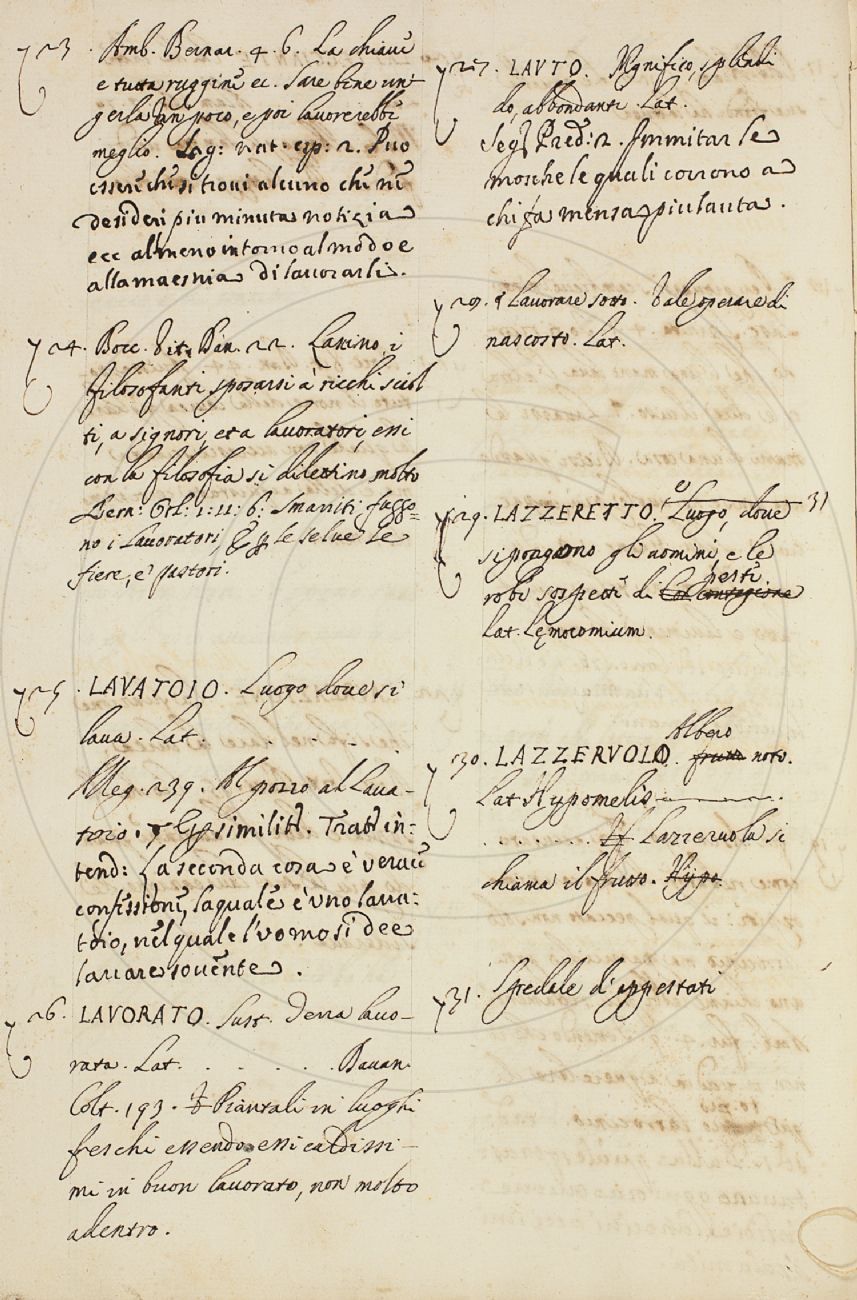 23. Amb. Bernar. 4. 6. La chiave
è tutta ruggine ec. Sare bene un-
gerla un poco, e poi lavorerebbe
meglio. Sag: nat: esp: 2. Puo
essere che si trovi alcuno che ne
desideri piu minuta notizia
ecc almeno intorno al modo e
alla maestria di lavorarli.
24. Bocc. Vit. Dan. 22. Lascino i
filosofanti sposarsi a' ricchi stol
ti, a signori, et a lavoratori, essi
con la filosofia si dilettino molto
Bern: Orl: 1: 11: 6: Smarriti fuggo=
no i lavoratori, E p le selve le
fiere, e' pastori.
25. LAVATOIO. Luogo dove si
lava. Lat. . . . . .
Alleg. 239. Al pozzo al Lava-
toio. Similit. Tratt in-
tend: La seconda cosa è verace
confessione, la quale è uno lava-
toio, nel quale l'uomo si dee
lavare sovente.
26. LAVORATO. Sust. Terra lavo-
rata. Lat. . . . . . Davan.
Colt. 193. Piantali in luoghi
freschi essendo essi caldissi-
mi in buon lavorato, non molto
adentro.
27. LAVTO. Magnifico, splendi
do, abbondante. Lat.
Seg. Pred: 2. Immitar le
mosche le quali corrono a
chi fa mensa piu lauta.
29. Lavorare sotto. Vale operare di
nascosto. Lat.
29. LAZZERETTO. Luogo, dove 31
si pongono gli uomini, e le
robe sospette di contagione peste
lat.
30. LAZZERVOLO. frutto Albero noto.
Lat Hypomelis
. . . . . . . Lazzeruola si
chiama il frutto. Hypo.
31. Spedale d'appestati